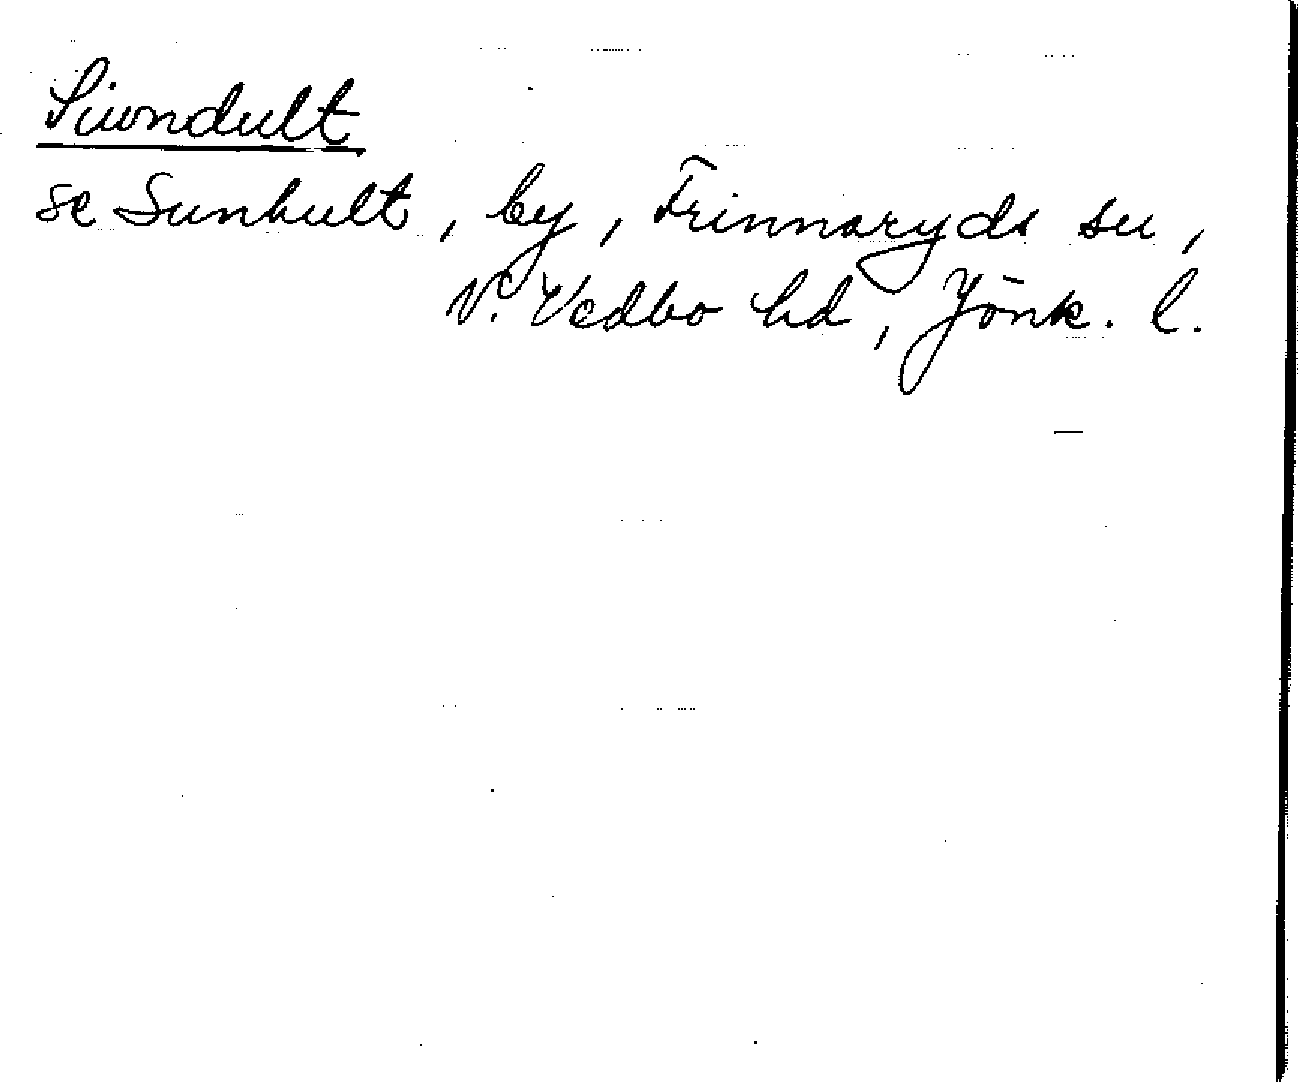 Siwndult
se Sunhult, by, Frinnaryds sn,
N. Vedbo hd, Jönk. l.